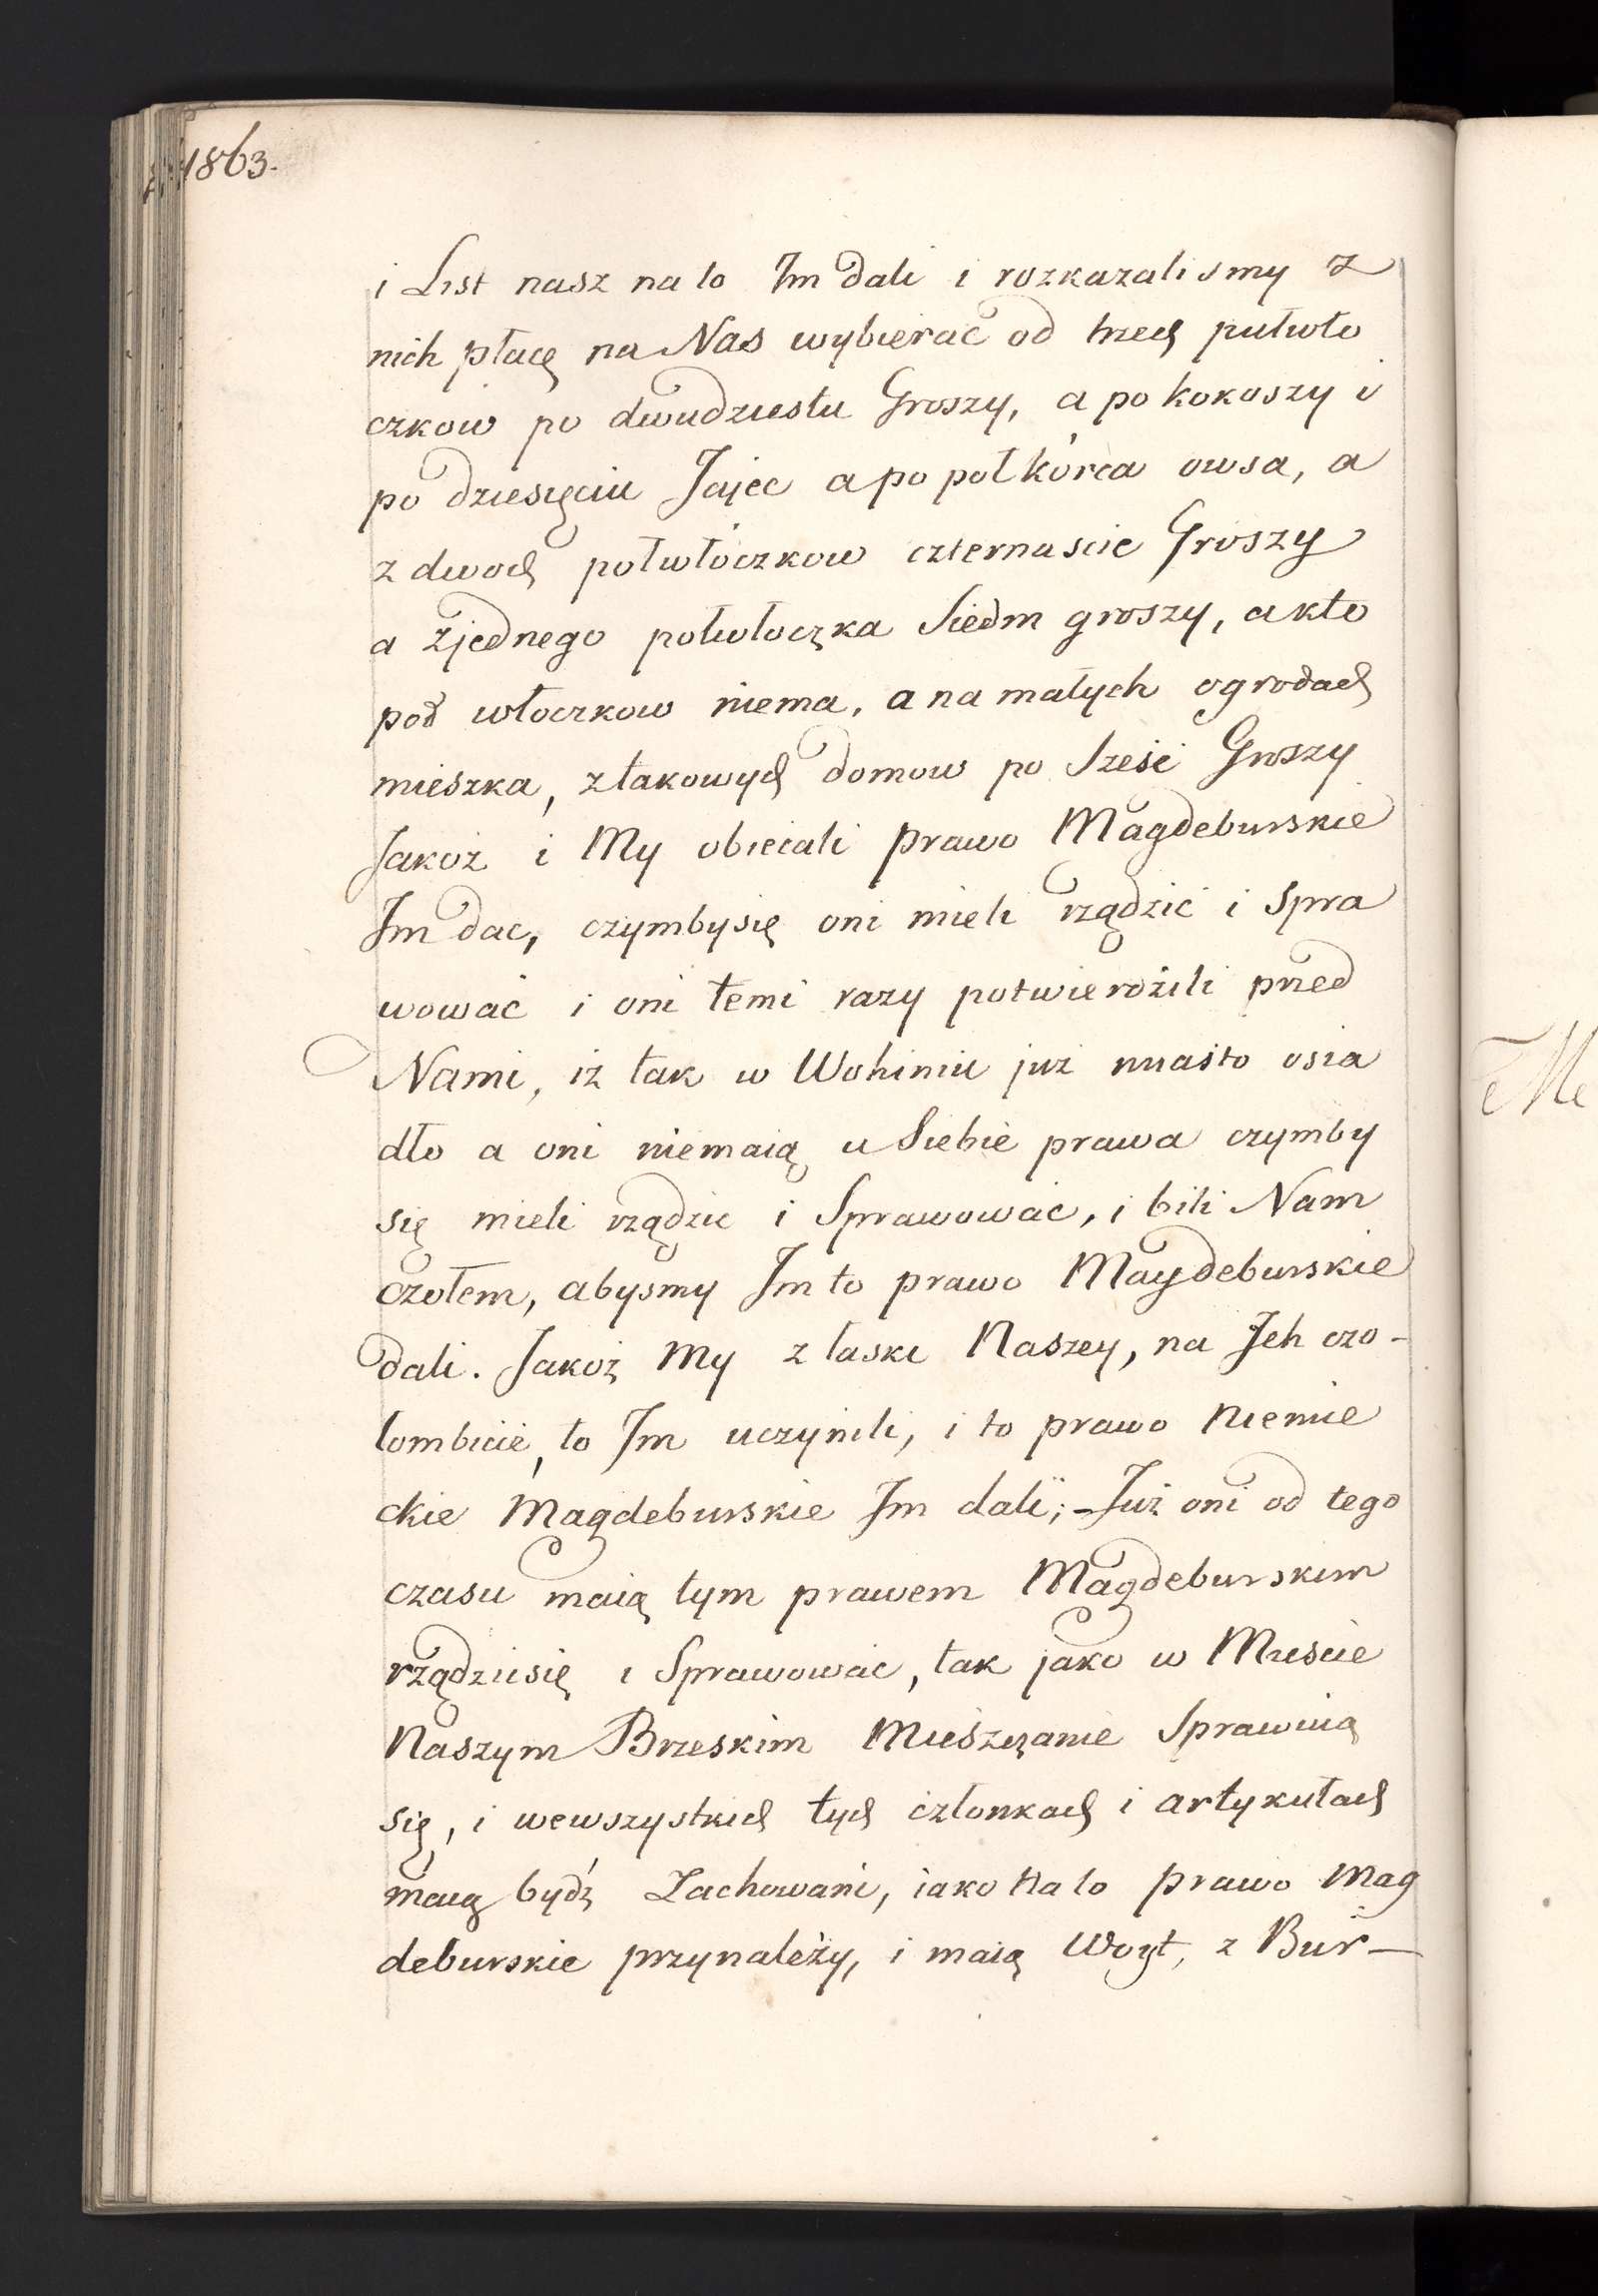 1863.
i List nasz na to Im dali i rozkazalismy z
nich płacę na Nas wybierać od trzech pułwło
czkow po dwudziestu Groszy, a po kokoszy i
po dziesięciu Jajec a po poł kórca owsa, a
z dwoch połwłóczkow czternascie Groszy
a zjednego połwłoczka Siedm groszy, a kto
pod włoczkow niema, a na małych ogrodach
mieszka, ztakowych domow po Sześć Groszy
Jakoż i My obiecali prawo Magdeburskie
Im dac, czymbysię oni mieli rządzić i Spra
wować i oni temi razy potwierdzili przed
Nami, iż tak w Wohiniu już miasto osia
dło a oni niemaią u Siebie prawa czymby
się mieli rządzic i Sprawować, i bili Nam
czołem, abysmy Im to prawo Magdeburskie
dali. Jakoż My z łaski Naszey, na Ich czo-
łombicie, to Im uczynili, i to prawo Niemie
ckie Magdeburskie Im dali; Już oni od tego
czasu maią tym prawem Magdeburskim
rządzicsię i Sprawować, tak jako w Miescie
Naszym Brzeskim Mieszczanie Sprawuią
się, i wewszystkich tych członkach i artykułach
maią bydź Zachowani, iako Na to prawo Mag
deburskie przynależy, i maią Woyt, z Bur-